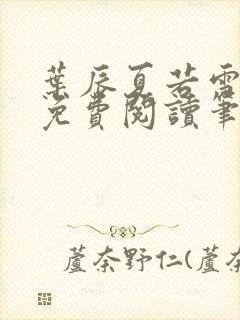 葉辰夏若雪
免費閱讀筆
蘆奈野仁(蘆奈